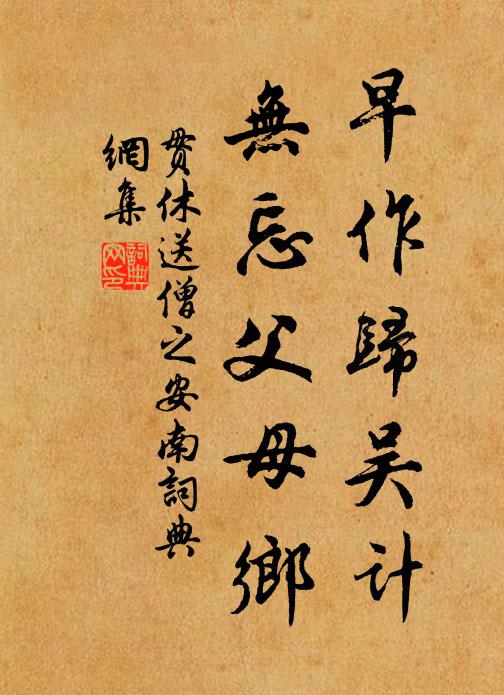 早作歸吴计
無忘父母鄉
贯休送僧之安南詞典
網集
詞典網印